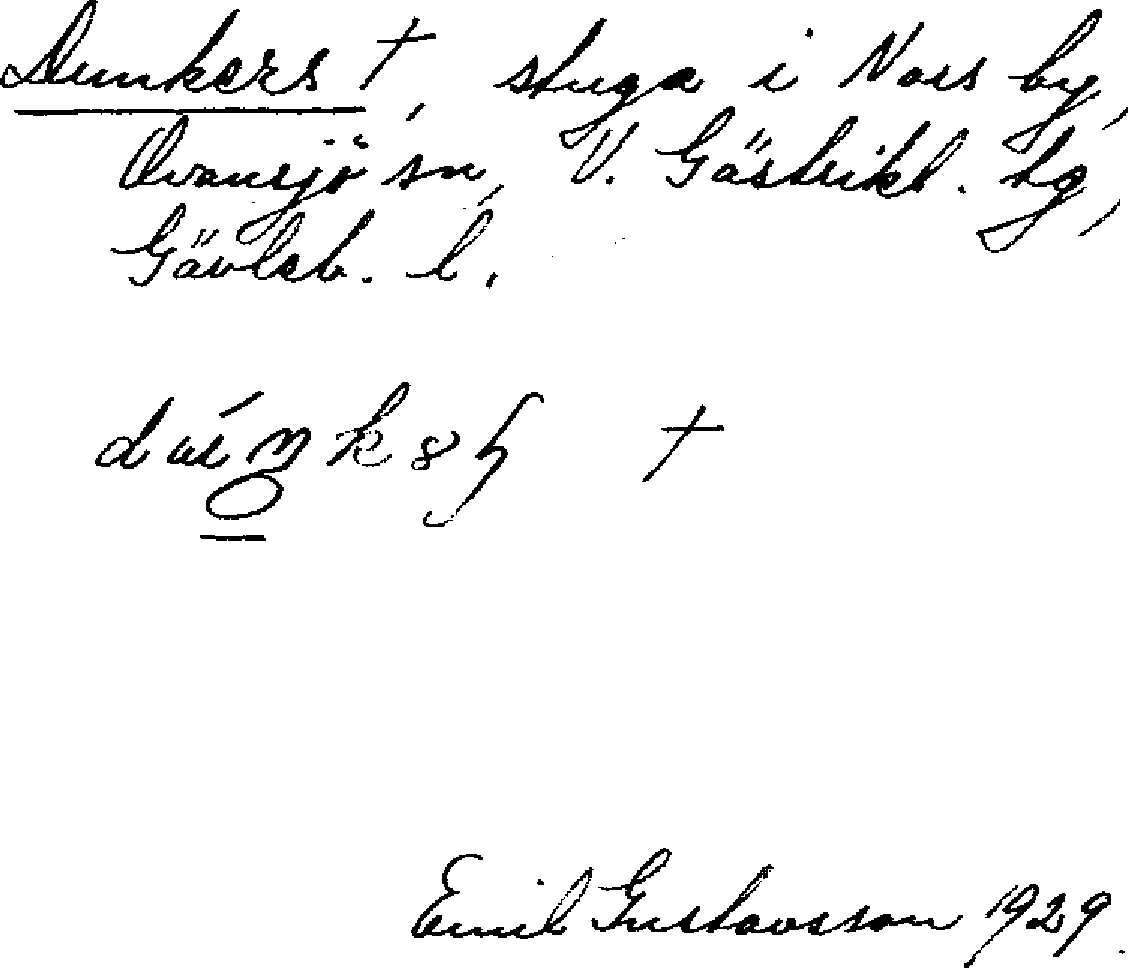 Dunkers †, stuga i Nors by,
Ovansjö sn, V. Gästrikl. tg,
Gävleb. l.
†
Emil Gustavsson 1929.